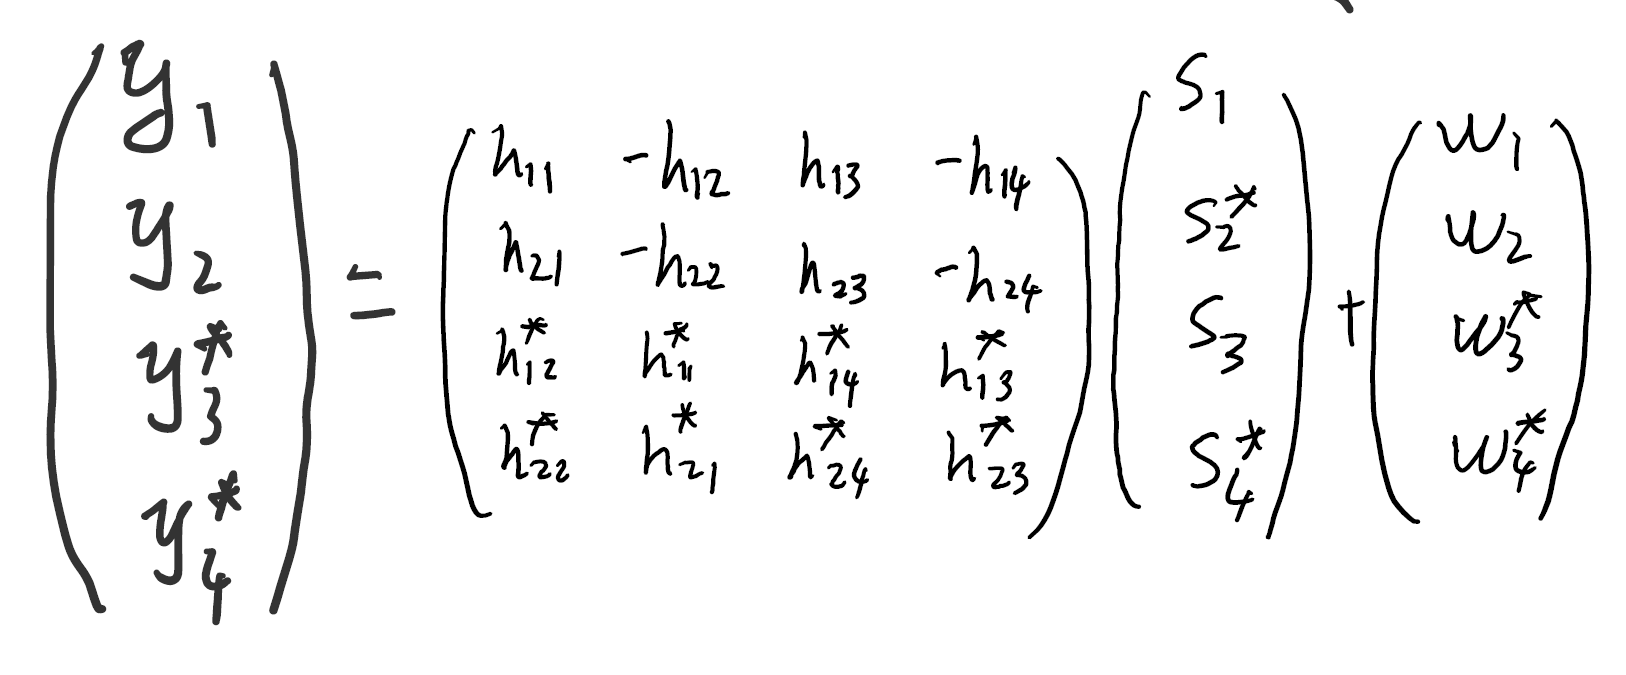 \begin{pmatrix} y_1 \\ y_2 \\ y_3^* \\ y_4^* \end{pmatrix} = \begin{pmatrix} h_{11} & -h_{12} & h_{13} & -h_{14} \\ h_{21} & -h_{22} & h_{23} & -h_{24} \\ h_{12}^* & h_{11}^* & h_{14}^* & h_{13}^* \\ h_{22}^* & h_{21}^* & h_{24}^* & h_{23}^* \end{pmatrix} \begin{pmatrix} s_1 \\ s_2^* \\ s_3 \\ s_4^* \end{pmatrix} + \begin{pmatrix} w_1 \\ w_2 \\ w_3^* \\ w_4^* \end{pmatrix}